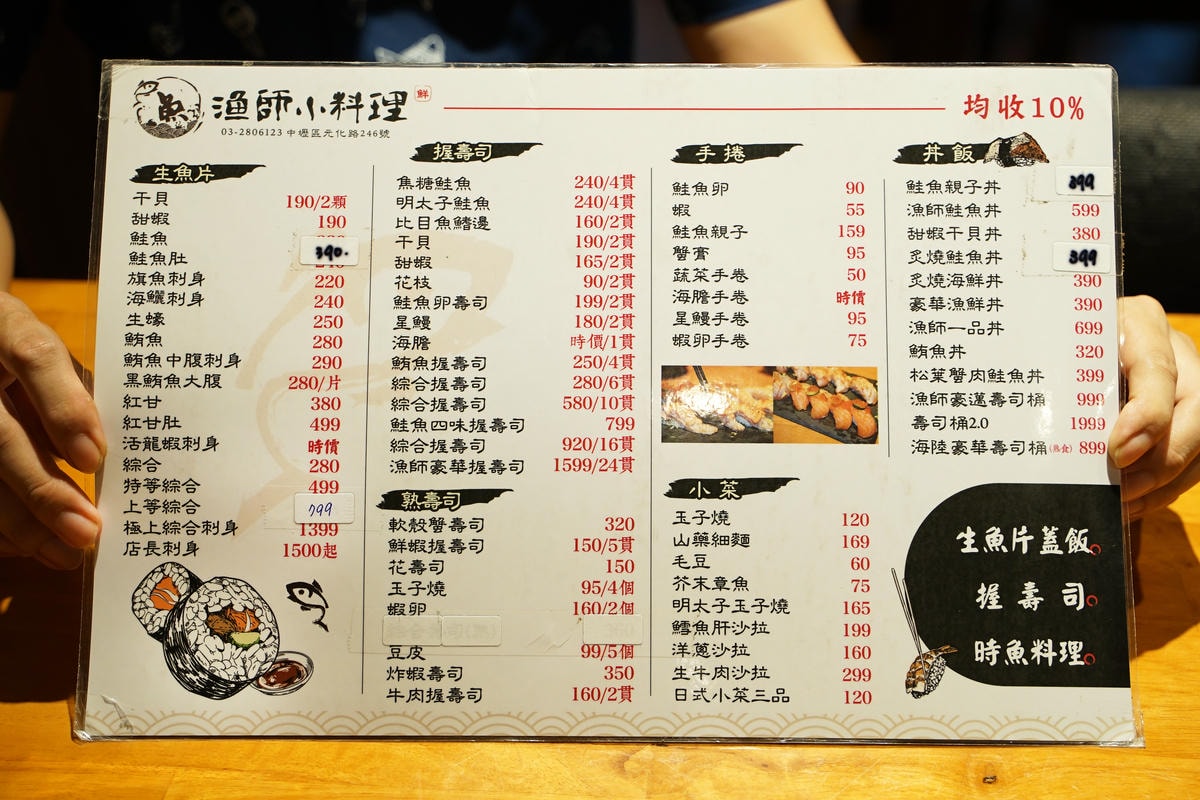 漁師小料理 鮮
魚
03-2806123 中壢區元化路246號
均收10%
生魚片
干貝 190/2顆
甜蝦 190
鮭魚
鮭魚肚 390.
旗魚刺身 220
海鱺刺身 240
生蠔 250
鮪魚 280
鮪魚中腹刺身 290
黑鮪魚大腹 280/片
紅甘 380
紅甘肚 499
活龍蝦刺身 時價
綜合 280
特等綜合 499
上等綜合 799
極上綜合刺身 1399
店長刺身 1500起
握壽司
焦糖鮭魚 240/4貫
明太子鮭魚 240/4貫
比目魚鰭邊 160/2貫
干貝 190/2貫
甜蝦 165/2貫
花枝 90/2貫
鮭魚卵壽司 199/2貫
星鰻 180/2貫
海膽 時價/1貫
鮪魚握壽司 250/4貫
綜合握壽司 280/6貫
綜合握壽司 580/10貫
鮭魚四味握壽司 799
綜合握壽司 920/16貫
漁師豪華握壽司 1599/24貫
熟壽司
軟殼蟹壽司 320
鮮蝦握壽司 150/5貫
花壽司 150
玉子燒 95/4個
蝦卵 160/2個
豆皮 99/5個
炸蝦壽司 350
牛肉握壽司 160/2貫
手捲
鮭魚卵 90
蝦 55
鮭魚親子 159
蟹膏 95
蔬菜手卷 50
海膽手卷 時價
星鰻手卷 95
蝦卵手卷 75
小菜
玉子燒 120
山藥細麵 169
毛豆 60
芥末章魚 75
明太子玉子燒 165
鱈魚肝沙拉 199
洋蔥沙拉 160
生牛肉沙拉 299
日式小菜三品 120
丼飯
鮭魚親子丼 399
漁師鮭魚丼 599
甜蝦干貝丼 380
炙燒鮭魚丼 399
炙燒海鮮丼 390
豪華漁鮮丼 390
漁師一品丼 699
鮪魚丼 320
松葉蟹肉鮭魚丼 399
漁師豪邁壽司桶 999
壽司桶2.0 1999
海陸豪華壽司桶(熟食) 899
生魚片蓋飯。
握壽司。
時魚料理。